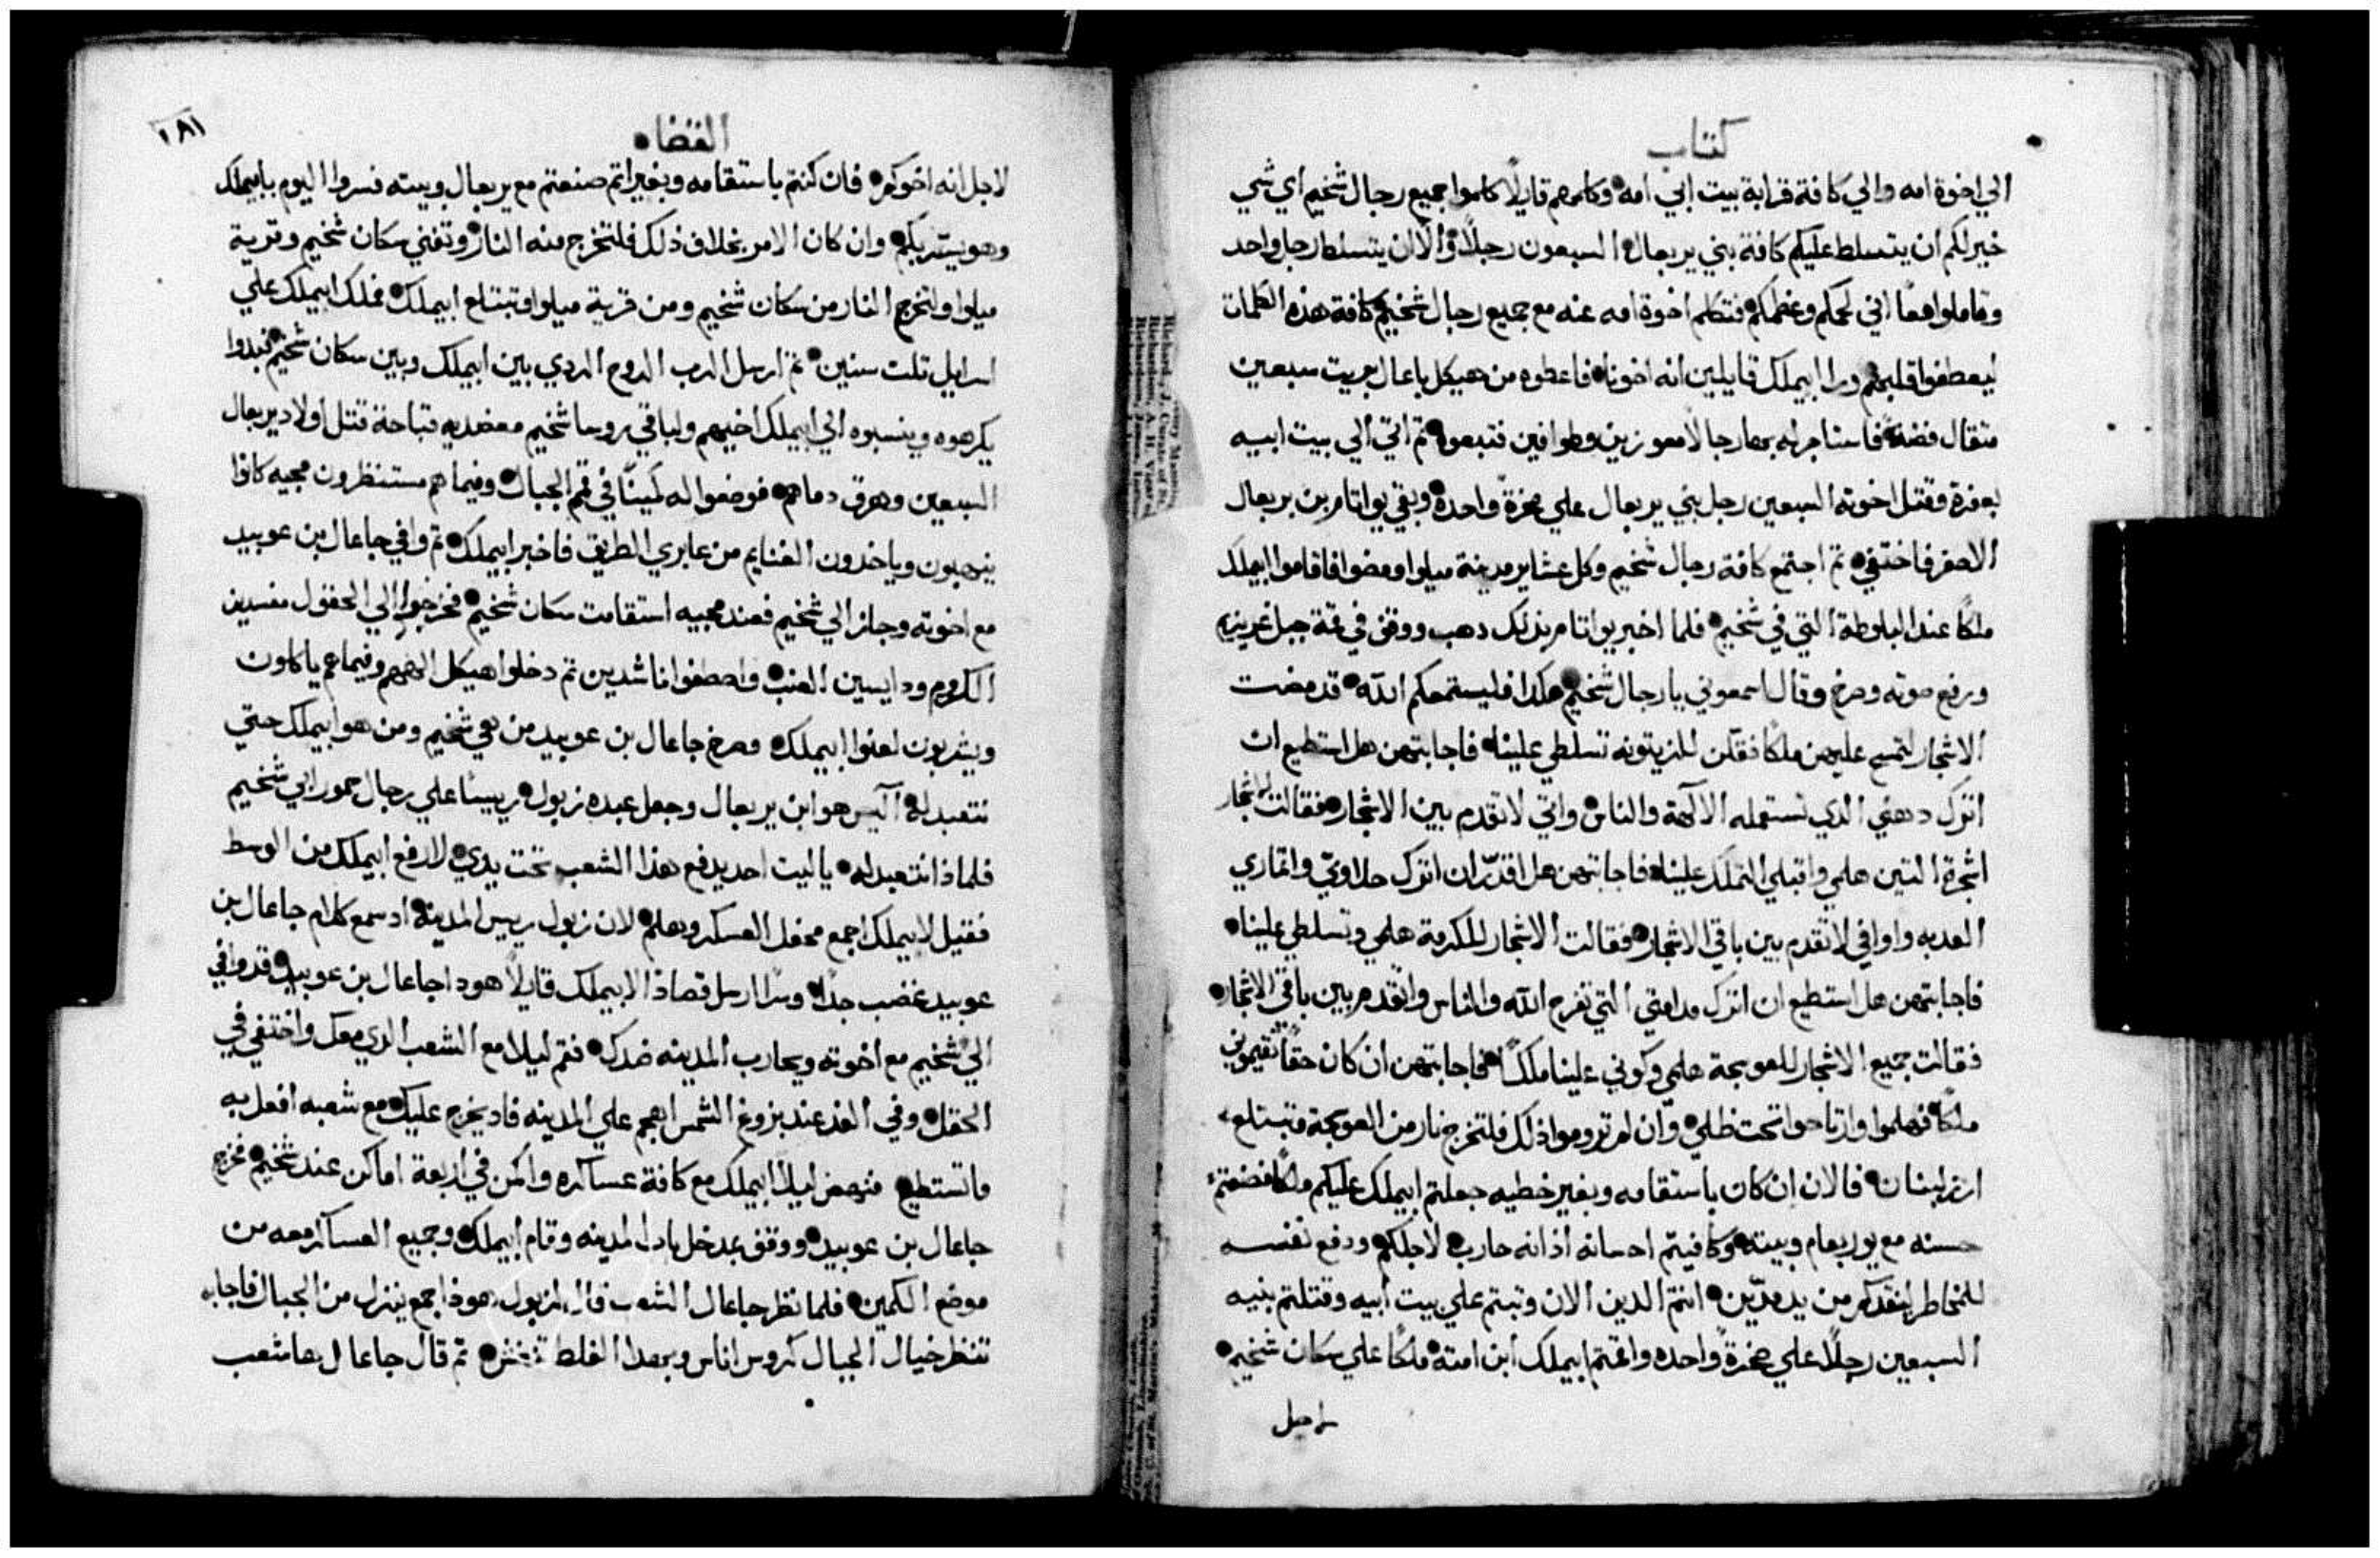 كتاب
الي اخوة امه والي كافة قرابة بيت ابي امه وكلمهم قايلاً كلموا جميع رجال شخيم اي شي
خير لكم ان يتسلط عليكم كافة بني يربعال السبعون رجلاً والّا ان يتسلط رجل واحد
وتاملوا معًا اني لحمكم وعظمكم فتكلم اخوة امه عنه مع جميع رجال شخيم كافة هذه الكلمات
ليعطفوا قلبهم ورا ابيملك قايلين انه اخونا فاعطوه من هيكل باعال بريت سبعين
متقال فضة فاستاجر له بها رجالاً معوزين وطوافين فتبعوه ثم اتي الي بيت ابيه
بعفرة وقتل اخوته السبعين رجل بني يربعال علي صخرة واحدة وبقي يواتام بن يربعال
الاصغر فاختفي ثم اجتمع كافة رجال شخيم وكل عشاير مدينة ميلوا ومضوا فاقاموا ابيملك
ملكًا عند البلوطة التي في شخيم فلما اخبر يواتام بذلك دهب ووقف في قمة جبل غريزيم
ورفع صوته وصرخ وقال اسمعوني يا رجال شخيم هكذا فليستمعكم الله قد مضت
الاشجار لتمسح عليهن ملكًا فقلن للزيتونه تسلطي علينا فاجابتهن هل استطيع ان
اترك دهني الذي تستعمله الالهة والناس واتي لاتقدم بين الاشجار فقالت الاشجار
لشجرة التين هلمي واقبلي التملك علينا فاجابتهن هل اقدر ان اترك حلاوتي واثماري
العدبه واوافي لاتقدم بين باقي الاشجار فقالت الاشجار للكرمة هلمي وتسلطي علينا
فاجابتهن هل استطيع ان اترك مدامتي التي تفرح الله والناس واتقدم بين باقي الاشجار
فقالت جميع الاشجار للعوسجة هلمي وكوني علينا ملكًا فاجابتهن ان كان حقًا تقيموني
ملكًا فهلموا وارتاحوا تحت ظلي وان لم تروموا ذلك فلتخرج نار من العوسجة وتبتلع
ارز لبنان فالان ان كان باستقامه وبغير خطيه جعلتم ابيملك عليكم ملكًا فصنعتم
حسنه مع يوربعام وبيته وكافيتم احسانه اذ انه حارب لاجلكم ودفع نفسه
للمخاطر لينقدكم من يد مدّين انتم الدين الان وتبتم علي بيت ابيه وقتلتم بنيه
السبعين رجلاً علي صخرة واحده واقمتم ابيملك ابن امته ملكًا علي سكان شخيم
لاجل
القضاه
١٨١
لاجل انه اخوكم فان كنتم باستقامه وبغير اتم صنعتم مع يربعال وبيته فسروا اليوم بابيملك
وهو يستر بكم وان كان الامر بخلاف ذلك فلتخرج منه النار وتفني سكان شخيم وقرية
ميلوا ولتخرج النار من سكان شخيم ومن قرية ميلوا فتبتلع ابيملك فملك ابيملك علي
اسرايل تلت سنين ثم ارسل الرب الروح الردي بين ابيملك وبين سكان شخيم فبدوا
يكرهوه وينسبوه الي ابيملك اخيهم ولباقي روسا شخيم معضديه قباحة قتل اولاد يربعال
السبعين وهرق دماهم فوضعوا له كمينًا في قمم الجبال وفيما هم مستنظرون مجيه كانوا
ينهبون وياخدون الغنايم من عابري الطريق فاخبر ابيملك ثم وافي جاعال بن عوبيد
مع اخوته وجاز الي شخيم فعند مجيه استقامت سكان شخيم فخرجوا الي الحقول مفسدين
الكروم ودايسين العنب واصطفوا ناشدين ثم دخلوا هيكل الههم وفيما هم ياكلون
ويشربون لعنوا ابيملك وصرخ جاعال بن عوبيد من هي شخيم ومن هو ابيملك حتي
نتعبد له اليس هو ابن يربعال وجعل عبده زبول رييسًا علي رجال حمور ابي شخيم
فلماذا نتعبد له يا ليت احد يدفع هذا الشعب تحت يدي لارفع ابيملك من الوسط
فقيل لابيملك اجمع محفل العسكر وهلم لان زبول رييس المدينة اد سمع كلام جاعال بن
عوبيد غضب جدًا وسرًا ارسل قصاد الابيملك قايلاً هودا جاعال بن عوبيد قد وافي
الي شخيم مع اخوته ويحارب المدينه ضدك فقم ليلا مع الشعب الدي معك واختفي في
الحقل وفي الغد عند بزوغ الشمس اهجم علي المدينه فاد يخرج عليك مع شعبه افعل به
ما تستطيع فنهض ليلا ابيملك مع كافة عساكره واكمن في اربعة اماكن عند شخيم فخرج
جاعال بن عوبيد ووقف بمدخل باب المدينه وقام ابيملك وجميع العساكر معه من
موضع الكمين فلما نظر جاعال الشعب قال لزبول هودا جمع ينزل من الجبال فاجابه
تنظر خيال الجبال كروس اناس وبهدا الغلط ثم قال جاعال ها شعب